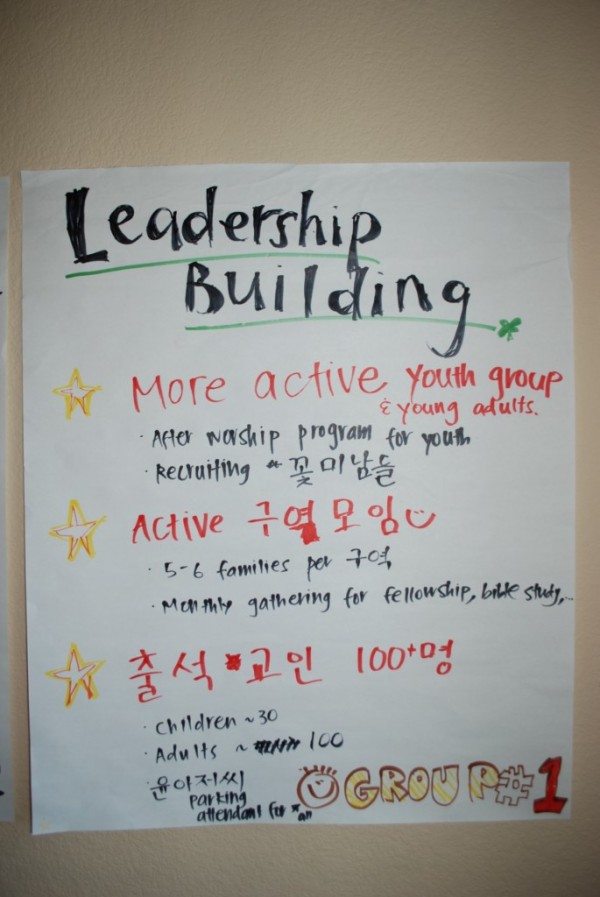 Leadership
Building
More active youth group
& young adults.
· After worship program for youth
· Recruiting 꽃미남들
Active 구역모임
· 5-6 families per 구역
· Monthly gathering for fellowship, bible study,...
출석 교인 100+명
· Children ~30
· Adults ~ 100
· 윤아저씨
parking
attendant for
GROUP#1